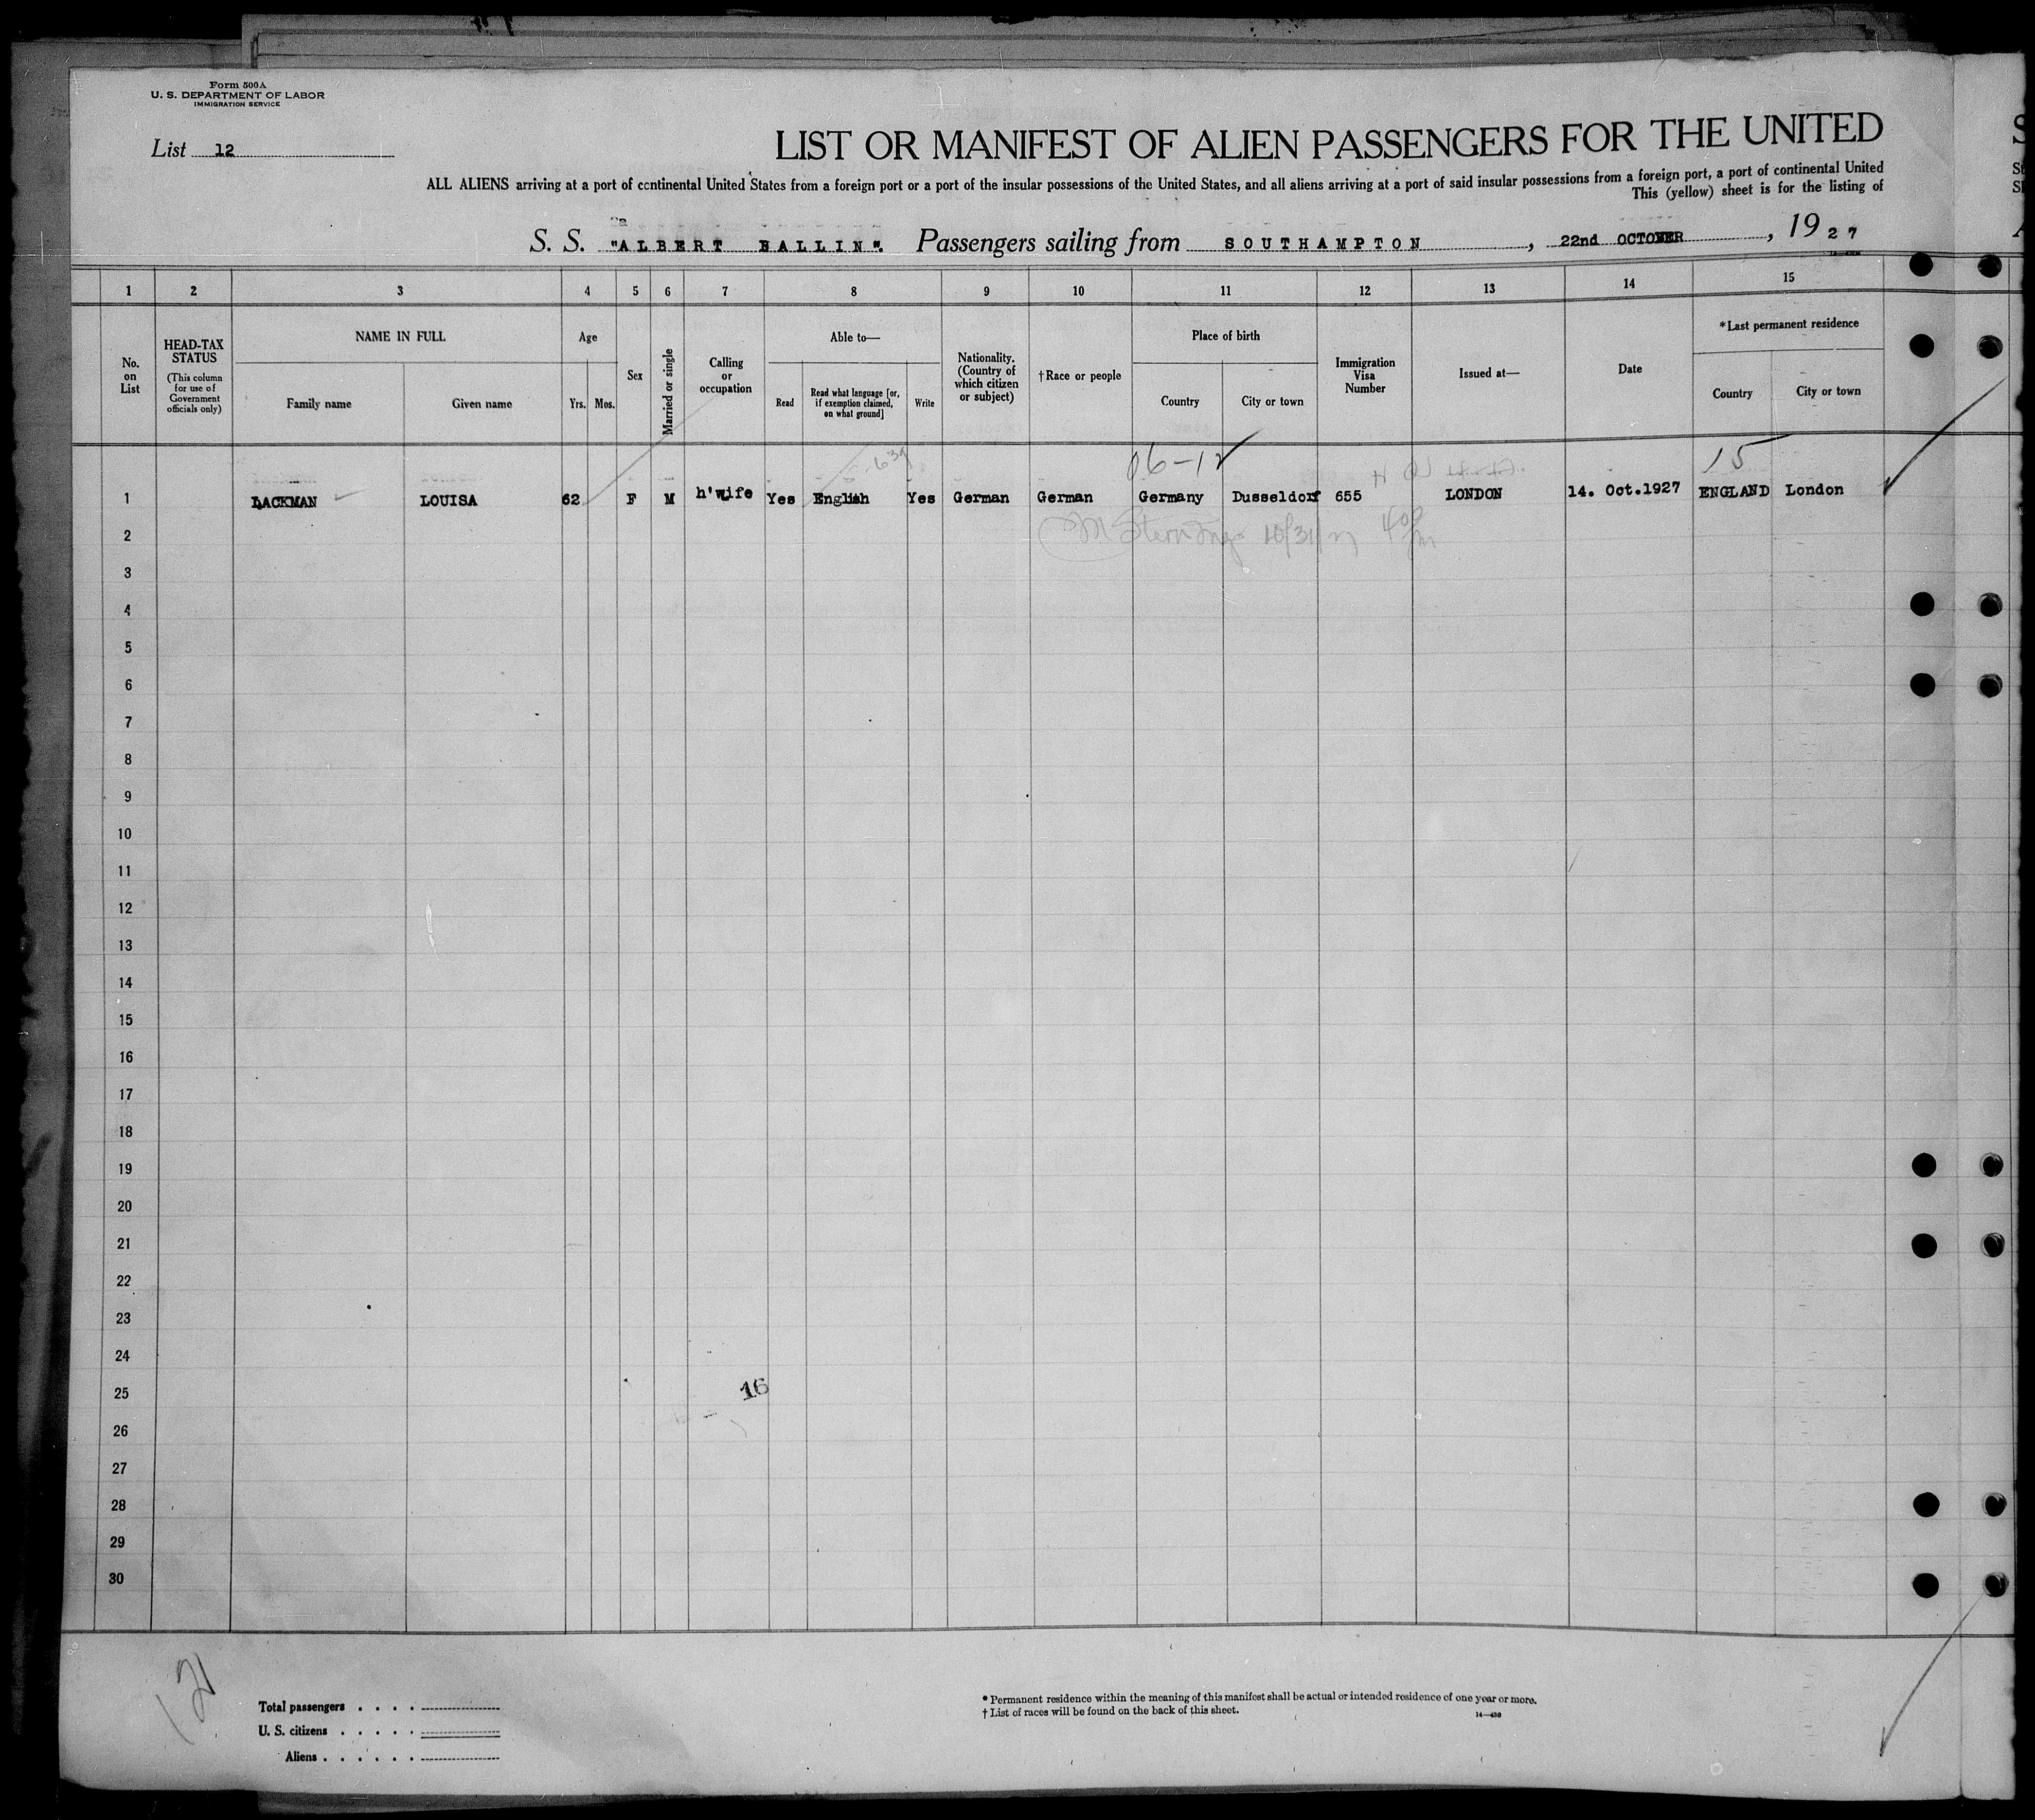 Form 500A
U. S. DEPARTMENT OF LABOR
IMMIGRATION SERVICE
List 12
LIST OR MANIFEST OF ALIEN PASSENGERS FOR THE UNITED
ALL ALIENS arriving at a port of continental United States from a foreign port or a port of the insular possessions of the United States, and all aliens arriving at a port of said insular possessions from a foreign port, a port of continental United
This (yellow) sheet is for the listing of
S. S. "ALBERT BALLIN". Passengers sailing from SOUTHAMPTON, 22nd OCTOBER, 1927
1 2 3 4 5 6 7 8 9 10 11 12 13 14 15
No. on List
HEAD-TAX STATUS
(This column for use of Government officials only)
NAME IN FULL
Family name
Given name
Age
Yrs. Mos.
Sex
Married or single
Calling or occupation
Able to—
Read
Read what language [or, if exemption claimed, on what ground]
Write
Nationality. (Country of which citizen or subject)
†Race or people
Place of birth
Country
City or town
Immigration Visa Number
Issued at—
Date
*Last permanent residence
Country
City or town
06-12
15
1 LACKMAN LOUISA 62 F M h'wife Yes English Yes German German Germany Dusseldorf 655 LONDON 14. Oct.1927 ENGLAND London
2
3
4
5
6
7
8
9
10
11
12
13
14
15
16
17
18
19
20
21
22
23
24
25
16
26
27
28
29
30
12
Total passengers . . . .
U. S. citizens . . . . .
Aliens . . . . . .
* Permanent residence within the meaning of this manifest shall be actual or intended residence of one year or more.
† List of races will be found on the back of this sheet.
14—430